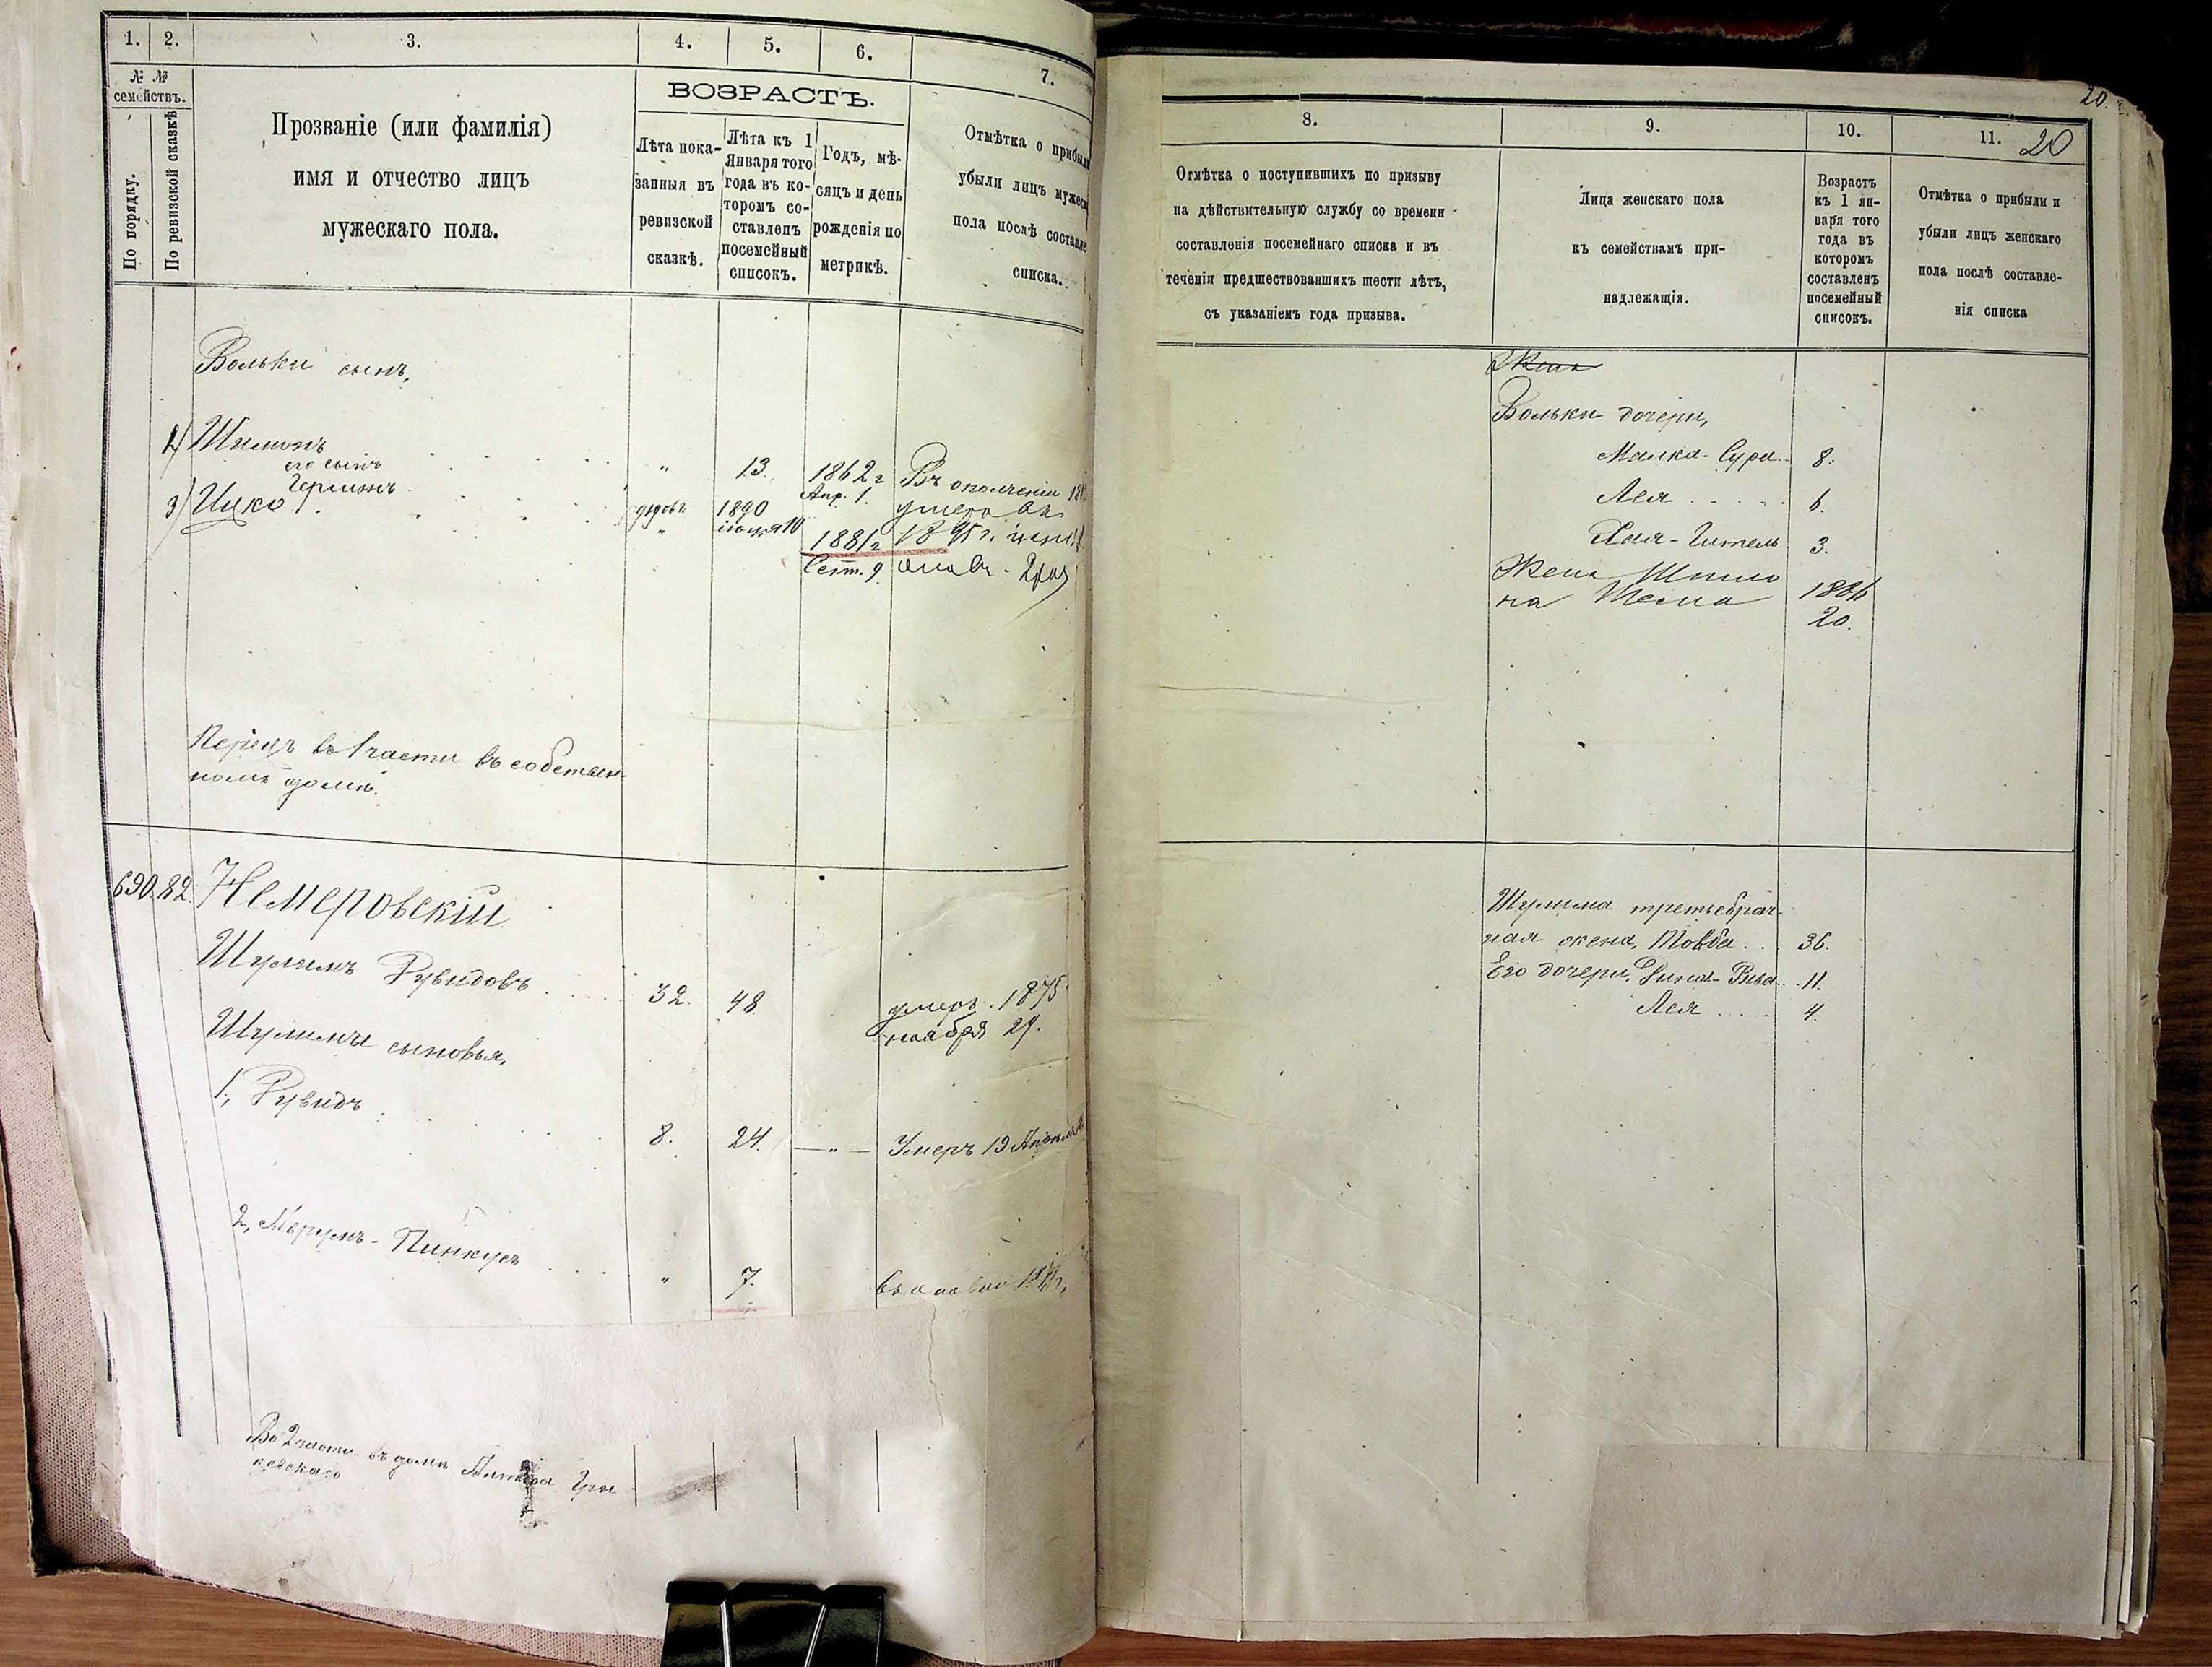 1. 2. 3. 4. 5. 6. 7.
№ № семействъ.
По порядку.
По ревизской сказкѣ
Прозваніе (или фамилія)
имя и отчество лицъ
мужескаго пола.
ВОЗРАСТЪ.
Лѣта пока-
занныя въ
ревизской
сказкѣ.
Лѣта къ 1
Января того
года въ ко-
торомъ со-
ставленъ
посемейный
списокъ.
Годъ, мѣ-
сяцъ и день
рожденія по
метрикѣ.
Отмѣтка о прибыли
убыли лицъ мужеск
пола послѣ составле
списка.
Вольки сынъ,
Шимонъ 13. 1862 г Въ ополченіи
его сынъ Апр. 1.
1890
3) Ицко 1881 г
Сент. 9
въ 1 части въ собствен-
номъ домѣ.
690. 82. Немеровскій
Шулимъ Рувидовъ 32. 48 умеръ 1875
ноября 29.
Шулима сыновья,
1, Рувидъ 8. 24. — " — Умеръ 19 Апрѣля
2, Пинкусъ " 7.
Во 2 части въ домѣ
20.
8. 9. 10. 11. 20
Отмѣтка о поступившихъ по призыву
на дѣйствительную службу со времени
составленія посемейнаго списка и въ
теченіи предшествовавшихъ шести лѣтъ,
съ указаніемъ года призыва.
Лица женскаго пола
къ семействамъ при-
надлежащія.
Возрастъ
къ 1 ян-
варя того
года въ
которомъ
составленъ
посемейный
списокъ.
Отмѣтка о прибыли и
убыли лицъ женскаго
пола послѣ составле-
нія списка
Жена
Вольки дочери,
Малка-Сура 8.
Лея 6.
Хая-Гитель 3.
Жена Шимо
на 1886
20.
Шулима третьебрач-
ная жена, Товба 36.
Его дочери, 11.
Лея 4.